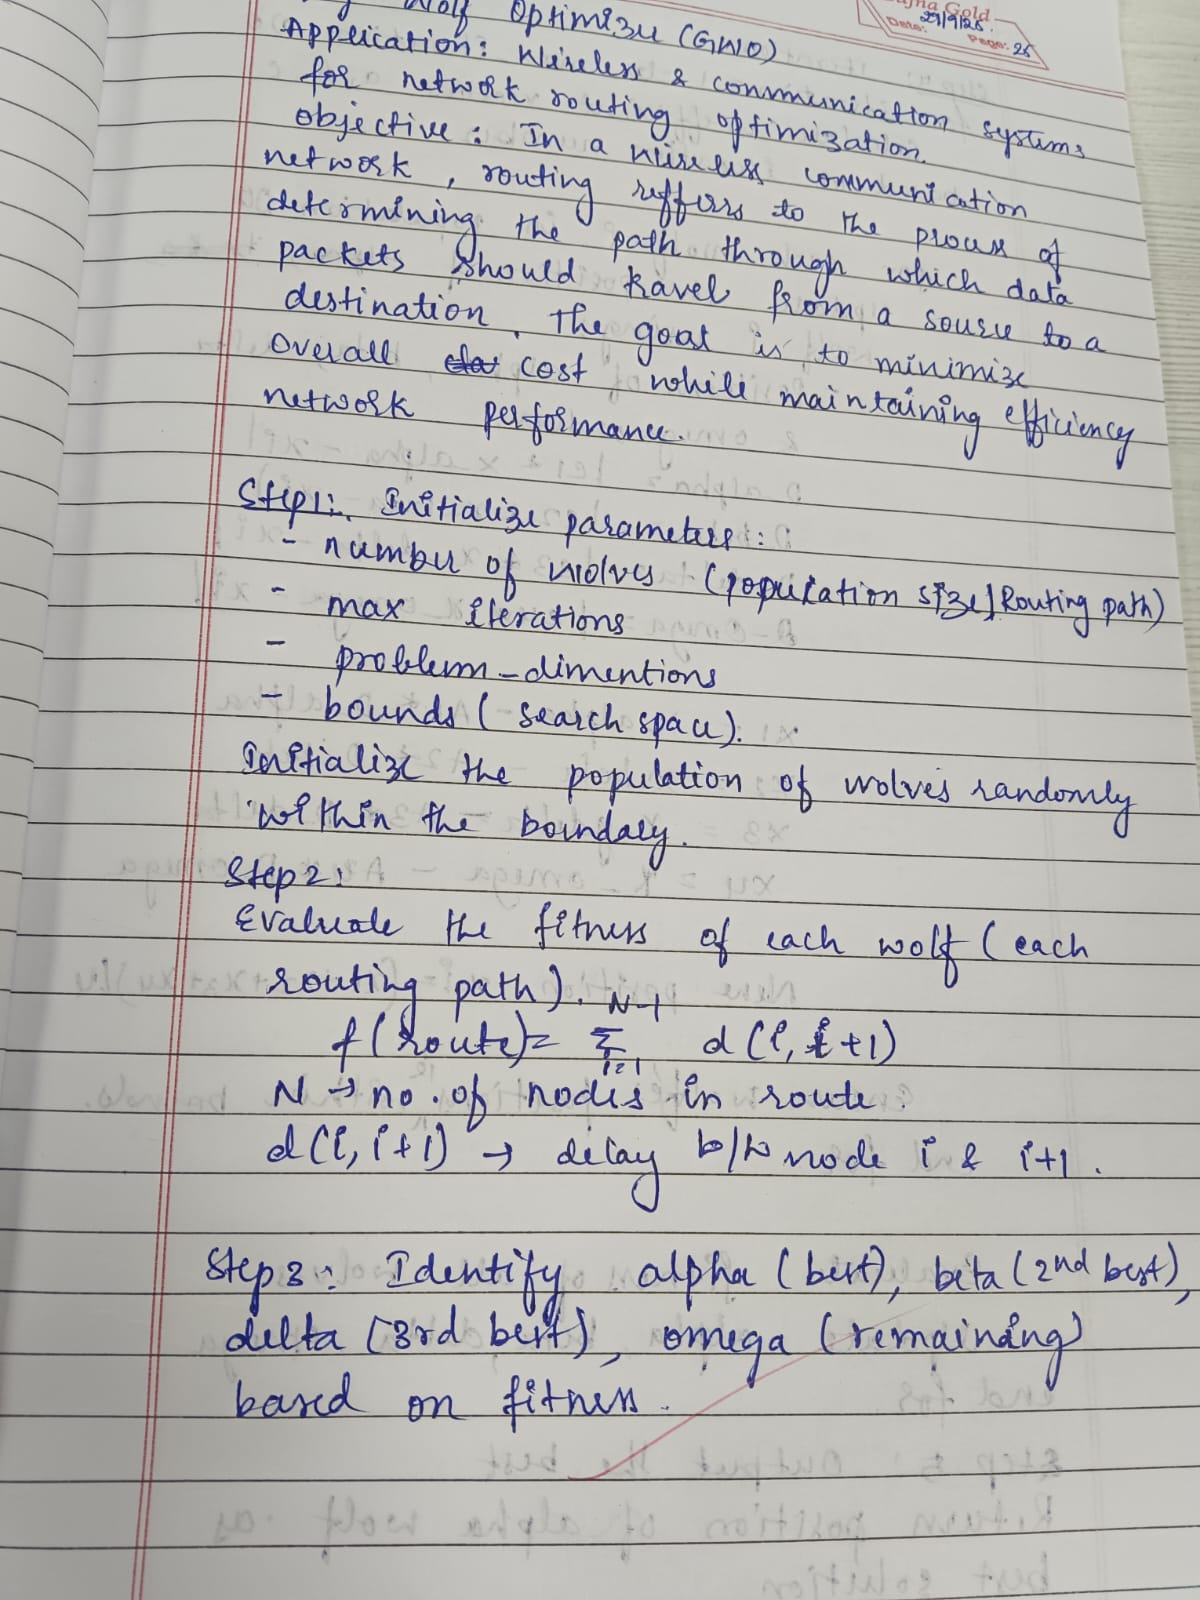 Wolf Optimizer (GWO)
Gold
Date: 29/9/25
Page: 25
Application: Wireless & communication systems
for network routing optimization.
objective: In a wireless communication
network, routing reffers to the process of
determining the path through which data
packets should travel from a source to a
destination. The goal is to minimize
overall cost while maintaining efficiency
network performance.
Step1:. Initialize parameters:
- number of wolves (population size] Routing path)
- max iterations
- problem-dimentions
- bounds (search space).
Initialize the population of wolves randomly
within the boundary.
Step2:
Evaluate the fitness of each wolf (each
routing path).
f(route)= N-1 Σ i=1 d(i, i+1)
N → no. of nodes in route.
d(i, i+1) → delay b/w node i & i+1.
Step3: Identify alpha (best), beta (2nd best),
delta (3rd best), omega (remaining)
based on fitness.